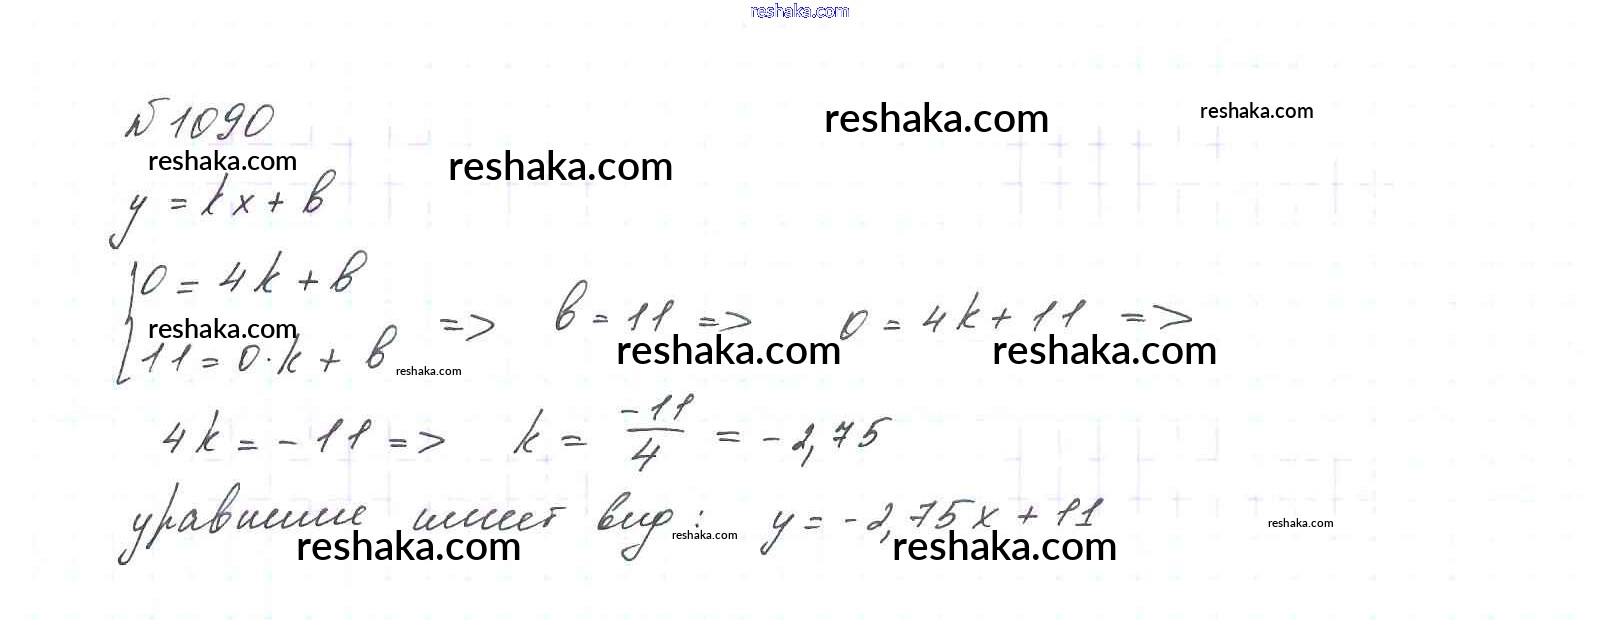 reshaka.com
№1090
reshaka.com reshaka.com
reshaka.com reshaka.com
y = kx + b
0 = 4k + b
reshaka.com
11 = 0·k + b => b = 11 => 0 = 4k + 11 =>
reshaka.com reshaka.com reshaka.com
4k = -11 => k = -11/4 = -2,75
уравнение имеет вид: y = -2,75x + 11
reshaka.com reshaka.com reshaka.com reshaka.com